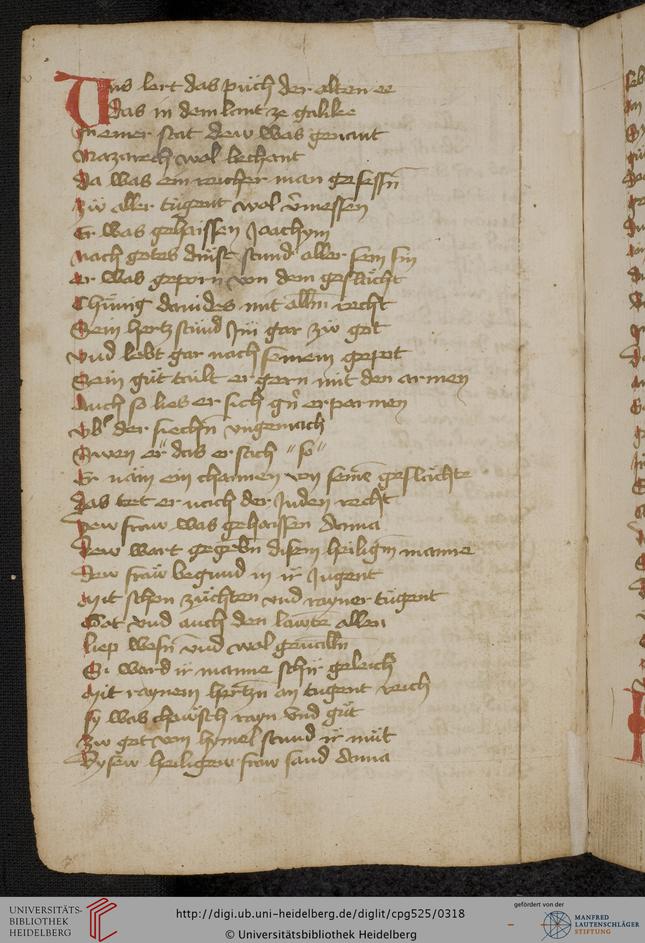 Uns lert das půch der alten ee
das in dem lant ze galilee
In einer stat dew was genant
Nazareth wol bechant
Da was ein reicher man gesessn̄
Zů aller tůgent wol v̄messen
Er was gehaissen Joachym
Nach gotes stund aller sein sin
er was geporn von dem geslächt
Chůnig dauides mit recht
Sein hertz stůnd Im gar zů got
Vnd lebt gar nach seinem gepot
Sein gůt tailt er gern mit den armen
Auch so lies er sich erparmen
der siechn̄ vngemach
Swen er das er sach so
Er nam ein von seinē geslächte
das tet er nach der Juden recht
Dew fraw was gehaissen Anna
dew wart gegebn̄ disem heilign̄ manne
dew fraw begund in ir Jugent
Mit schon züchten vnd rayner tůgent
Got vnd auch den läwten allen
liep wesn̄ vnd wol geualln̄
Si ward ir manne geleich
Mit raynem hertzn̄ an tugent reich
sy was chäwsch rayn vnd gůt
Zw got von hymel stund ir můt
Dysew heiligew fraw sand Anna
UNIVERSITÄTS-
BIBLIOTHEK
HEIDELBERG
http://digi.ub.uni-heidelberg.de/diglit/cpg525/0318
© Universitätsbibliothek Heidelberg
gefördert von der
MANFRED
LAUTENSCHLÄGER
STIFTUNG